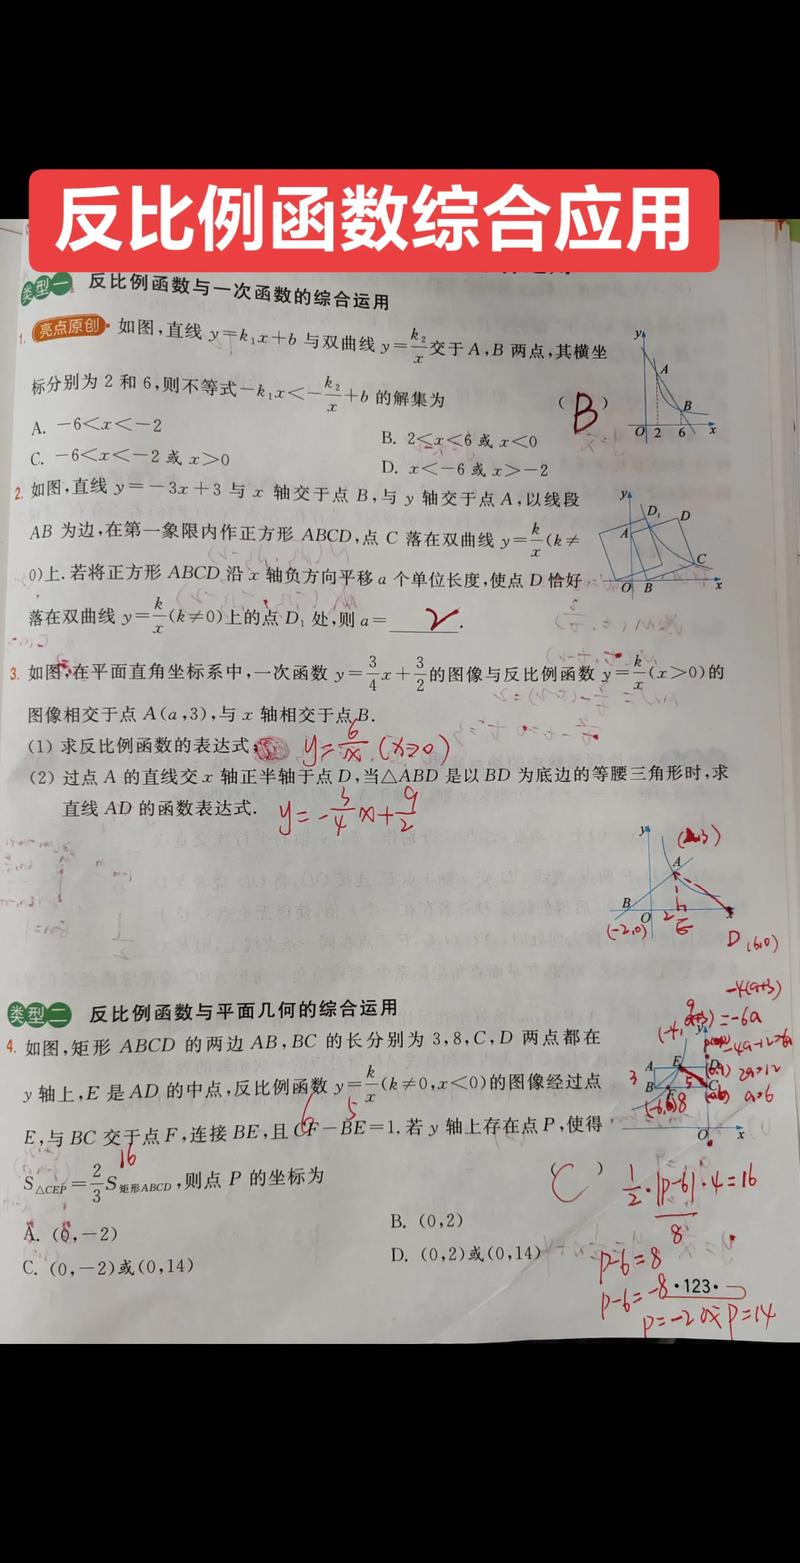 反比例函数综合应用
类型一 反比例函数与一次函数的综合运用
1. 亮点原创·如图,直线 y=k₁x+b 与双曲线 y=k₂/x 交于 A,B 两点,其横坐
标分别为 2 和 6,则不等式-k₁x<-k₂/x+b 的解集为 ( B )
A. -6<x<-2
B. 2<x<6 或 x<0
C. -6<x<-2 或 x>0
D. x<-6 或 x>-2
y
A
B
O 2 6 x
2. 如图,直线 y=-3x+3 与 x 轴交于点 B,与 y 轴交于点 A,以线段
AB 为边,在第一象限内作正方形 ABCD,点 C 落在双曲线 y=k/x(k≠
0)上.若将正方形 ABCD 沿 x 轴负方向平移 a 个单位长度,使点 D 恰好
落在双曲线 y=k/x(k≠0)上的点 D₁ 处,则 a= 2 .
y
D₁ D
A
C
O B x
3. 如图,在平面直角坐标系中,一次函数 y=3/4x+3/2的图像与反比例函数 y=k/x(x>0)的
图像相交于点 A(a,3),与 x 轴相交于点 B.
(1) 求反比例函数的表达式 y=6/x.(x>0)
(2) 过点 A 的直线交 x 轴正半轴于点 D,当△ABD 是以 BD 为底边的等腰三角形时,求
直线 AD 的函数表达式. y=-3/4x+9/2
y
A
B
O 2 E x
(-2,0)
D (6,0)
类型二 反比例函数与平面几何的综合运用
4. 如图,矩形 ABCD 的两边 AB,BC 的长分别为 3,8,C,D 两点都在
y 轴上,E 是 AD 的中点,反比例函数 y=k/x(k≠0,x<0)的图像经过点
E,与 BC 交于点 F,连接 BE,且 CF-BE=1.若 y 轴上存在点 P,使得
6 5
S△CEP=2/3S矩形ABCD,则点 P 的坐标为 ( C )
16
A. (0,-2)
B. (0,2)
C. (0,-2)或(0,14)
D. (0,2)或(0,14)
-4(a+3)
=-6a
a=6
A E D
3 B 5 C
8
O x
1/2·|p-6|·4=16
8
p-6=8
p-6=-8
p=-2或p=14
·123·